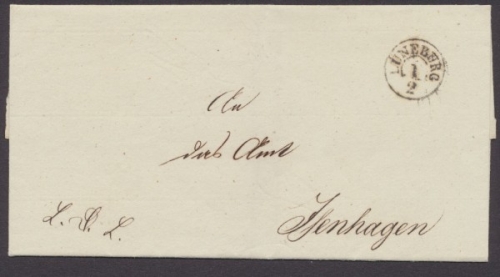 LÜNEBURG
1
2
An
das Amt
Isenhagen